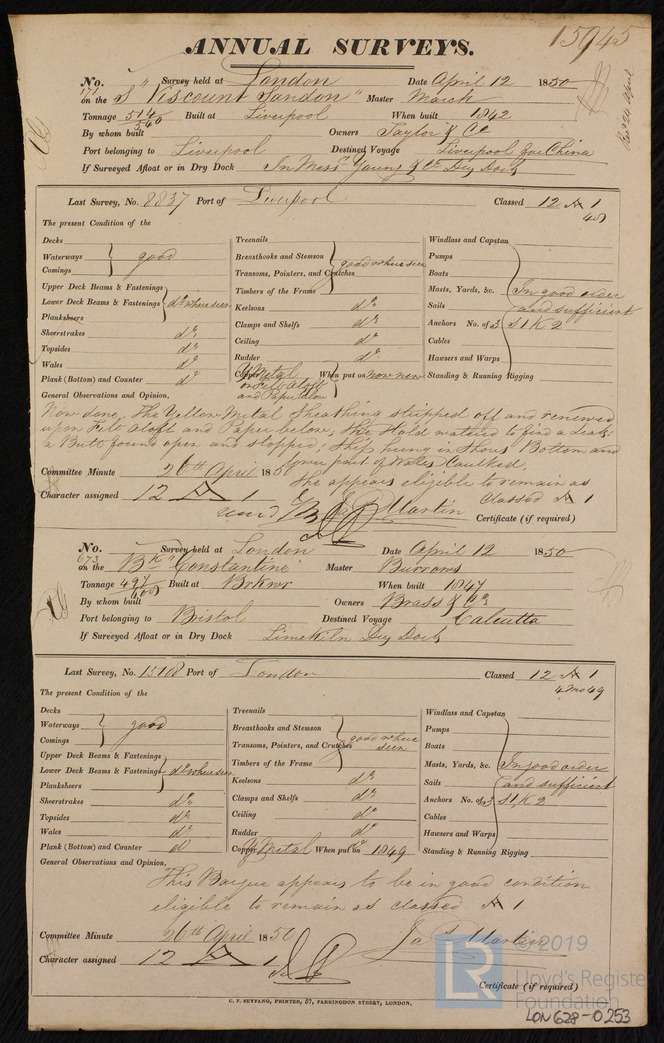 15945
ANNUAL SURVEYS.
No. 171 Survey held at London Date April 12 1850
on the S "Viscount Sandon" Master Marsh
Tonnage 514/540 Built at Liverpool When built 1842
By whom built Owners Taylor & Co
Port belonging to Liverpool Destined Voyage Liverpool for China
If Surveyed Afloat or in Dry Dock In Messrs Young & Co Dry Dock
Last Survey, No. 8837 Port of Liverpool Classed 12 A 1
49
The present Condition of the
Decks
Waterways good
Comings
Upper Deck Beams & Fastenings
Lower Deck Beams & Fastenings do where seen
Plankshears
Sheerstrakes do
Topsides do
Wales do
Plank (Bottom) and Counter do
Treenails
Breasthooks and Stemson good where seen
Transoms, Pointers, and Crutches
Timbers of the Frame
Keelsons do
Clamps and Shelfs do
Ceiling do
Rudder do
Copper Y Metal When put on now new
on Felt aloft
and Paper below
Windlass and Capstan
Pumps
Boats
Masts, Yards, &c. In good order
Sails and sufficient
Anchors No. of 3 St K 2
Cables
Hawsers and Warps
Standing & Running Rigging
General Observations and Opinion,
Now done, The Yellow Metal Sheathing stripped off and renewed
upon Felt aloft and Paper below, the Hold watered to find a Leak:
a Butt found open and stopped; Ship hung in Shores Bottom and
lower part of Wales Caulked.
Committee Minute 26th April 1850
She appears eligible to remain as
Classed A 1
Character assigned 12 A 1
Jas Martin
Certificate (if required)
No. 673 Survey held at London Date April 12 1850
on the Bk "Constantine" Master Burrows
Tonnage 497 Built at When built 1847
By whom built Owners Brass & Co
Port belonging to Bristol Destined Voyage Calcutta
If Surveyed Afloat or in Dry Dock Limekiln Dry Dock
Last Survey, No. 15108 Port of London Classed 12 A 1
4 mo 49
The present Condition of the
Decks
Waterways good
Comings
Upper Deck Beams & Fastenings
Lower Deck Beams & Fastenings do where seen
Planksheers
Sheerstrakes do
Topsides do
Wales do
Plank (Bottom) and Counter do
Treenails
Breasthooks and Stemson good where
Transoms, Pointers, and Crutches seen
Timbers of the Frame
Keelsons do
Clamps and Shelfs do
Ceiling do
Rudder do
Copper Y Metal When put on 1849
Windlass and Capstan
Pumps
Boats
Masts, Yards, &c. In good order
Sails and sufficient
Anchors No. of 3 St K 2
Cables
Hawsers and Warps
Standing & Running Rigging
General Observations and Opinion,
This Barque appears to be in good condition
eligible to remain as classed A 1
Committee Minute 26th April 1850
Jas Martin
Character assigned 12 A 1
Certificate (if required)
C. F. SEYFANG, PRINTER, 57, FARRINGDON STREET, LONDON.
© 2019
LR Lloyd's Register
Foundation
LON 628-0253